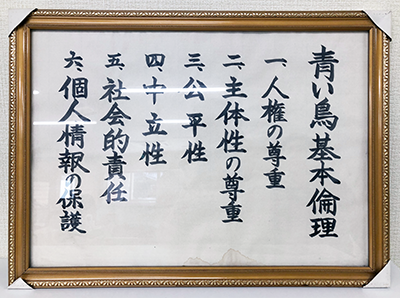 青い鳥基本倫理
一、人権の尊重
二、主体性の尊重
三、公平性
四、中立性
五、社会的責任
六、個人情報の保護